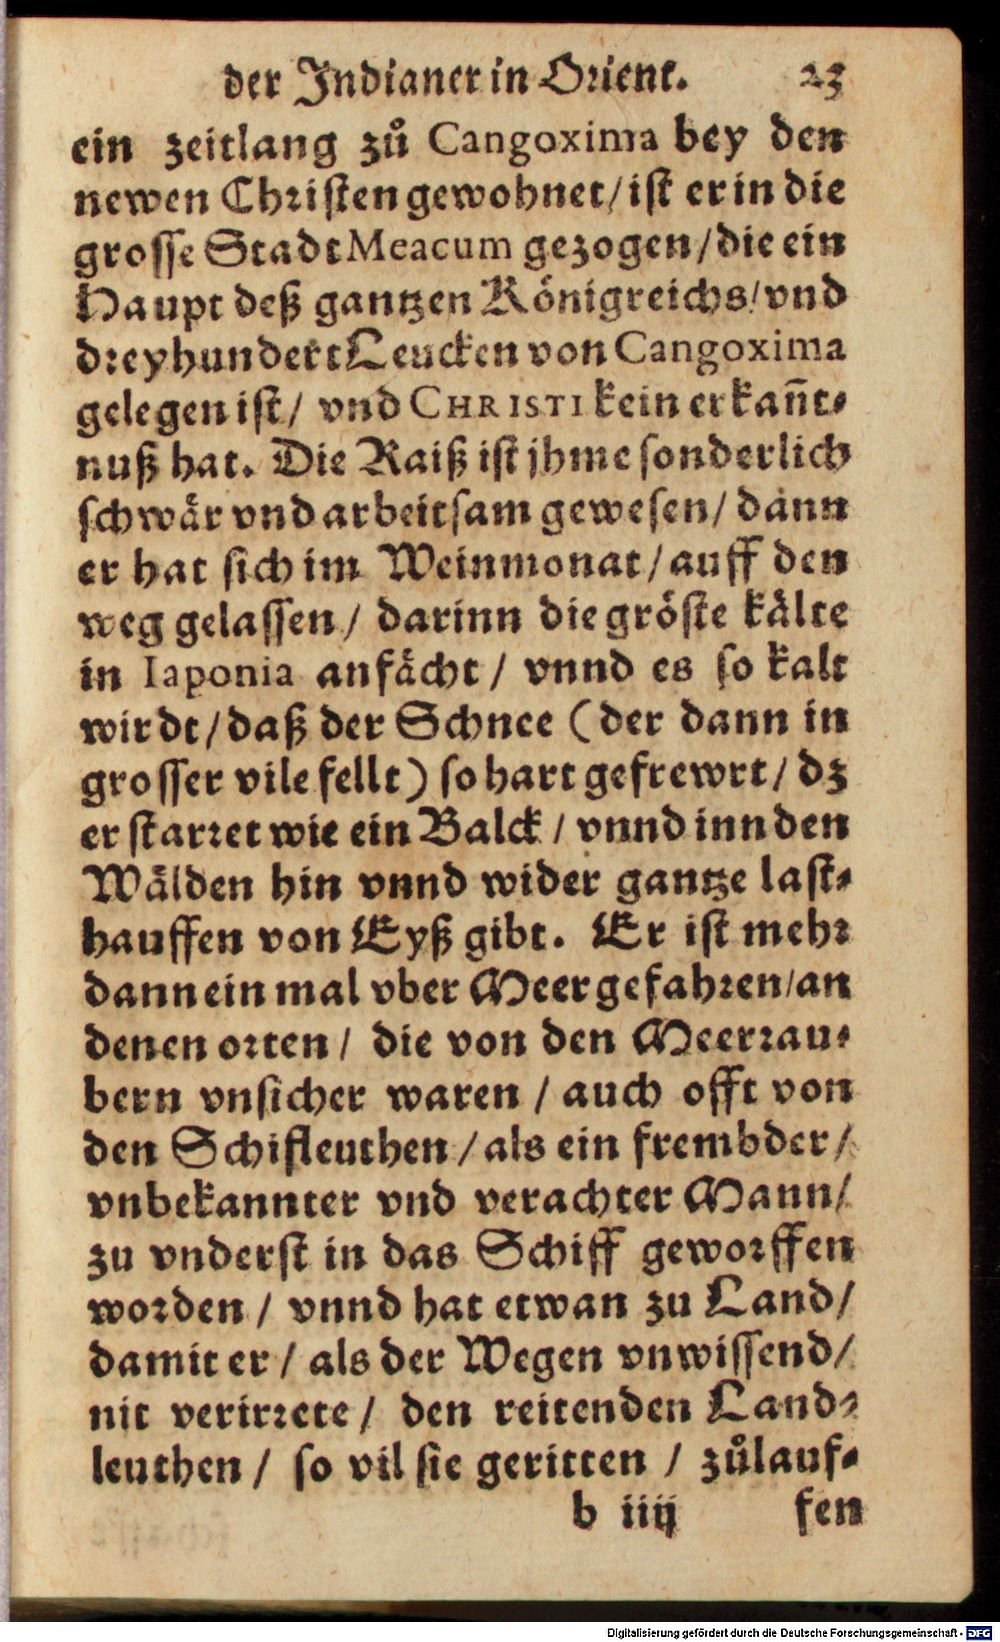 der Indianer in Orient. 23
ein zeitlang zů Cangoxima bey den
newen Christen gewohnet/ ist er in die
grosse Stadt Meacum gezogen/ die ein
Haupt deß gantzen Königreichs/ vnd
dreyhundert Leucken von Cangoxima
gelegen ist/ vnd CHRISTI kein erkañt-
nuß hat. Die Raiß ist jhme sonderlich
schwär vnd arbeitsam gewesen/ dann
er hat sich im Weinmonat/ auff den
weg gelassen/ darinn die gröste kälte
in Iaponia anfächt/ vnnd es so kalt
wirdt/ daß der Schnee (der dann in
grosser vile fellt) so hart gefrewrt/ dz
er starret wie ein Balck/ vnnd inn den
Wälden hin vnnd wider gantze last-
hauffen von Eyß gibt. Er ist mehr
dann ein mal vber Meer gefahren/ an
denen orten/ die von den Meerrau-
bern vnsicher waren/ auch offt von
den Schifleuthen/ als ein frembder/
vnbekannter vnd verachter Mann/
zu vnderst in das Schiff geworffen
worden/ vnnd hat etwan zu Land/
damit er/ als der Wegen vnwissend/
nit verirrete/ den reitenden Land-
leuthen/ so vil sie geritten/ zůlauf-
b iiij fen
Digitalisierung gefördert durch die Deutsche Forschungsgemeinschaft - DFG